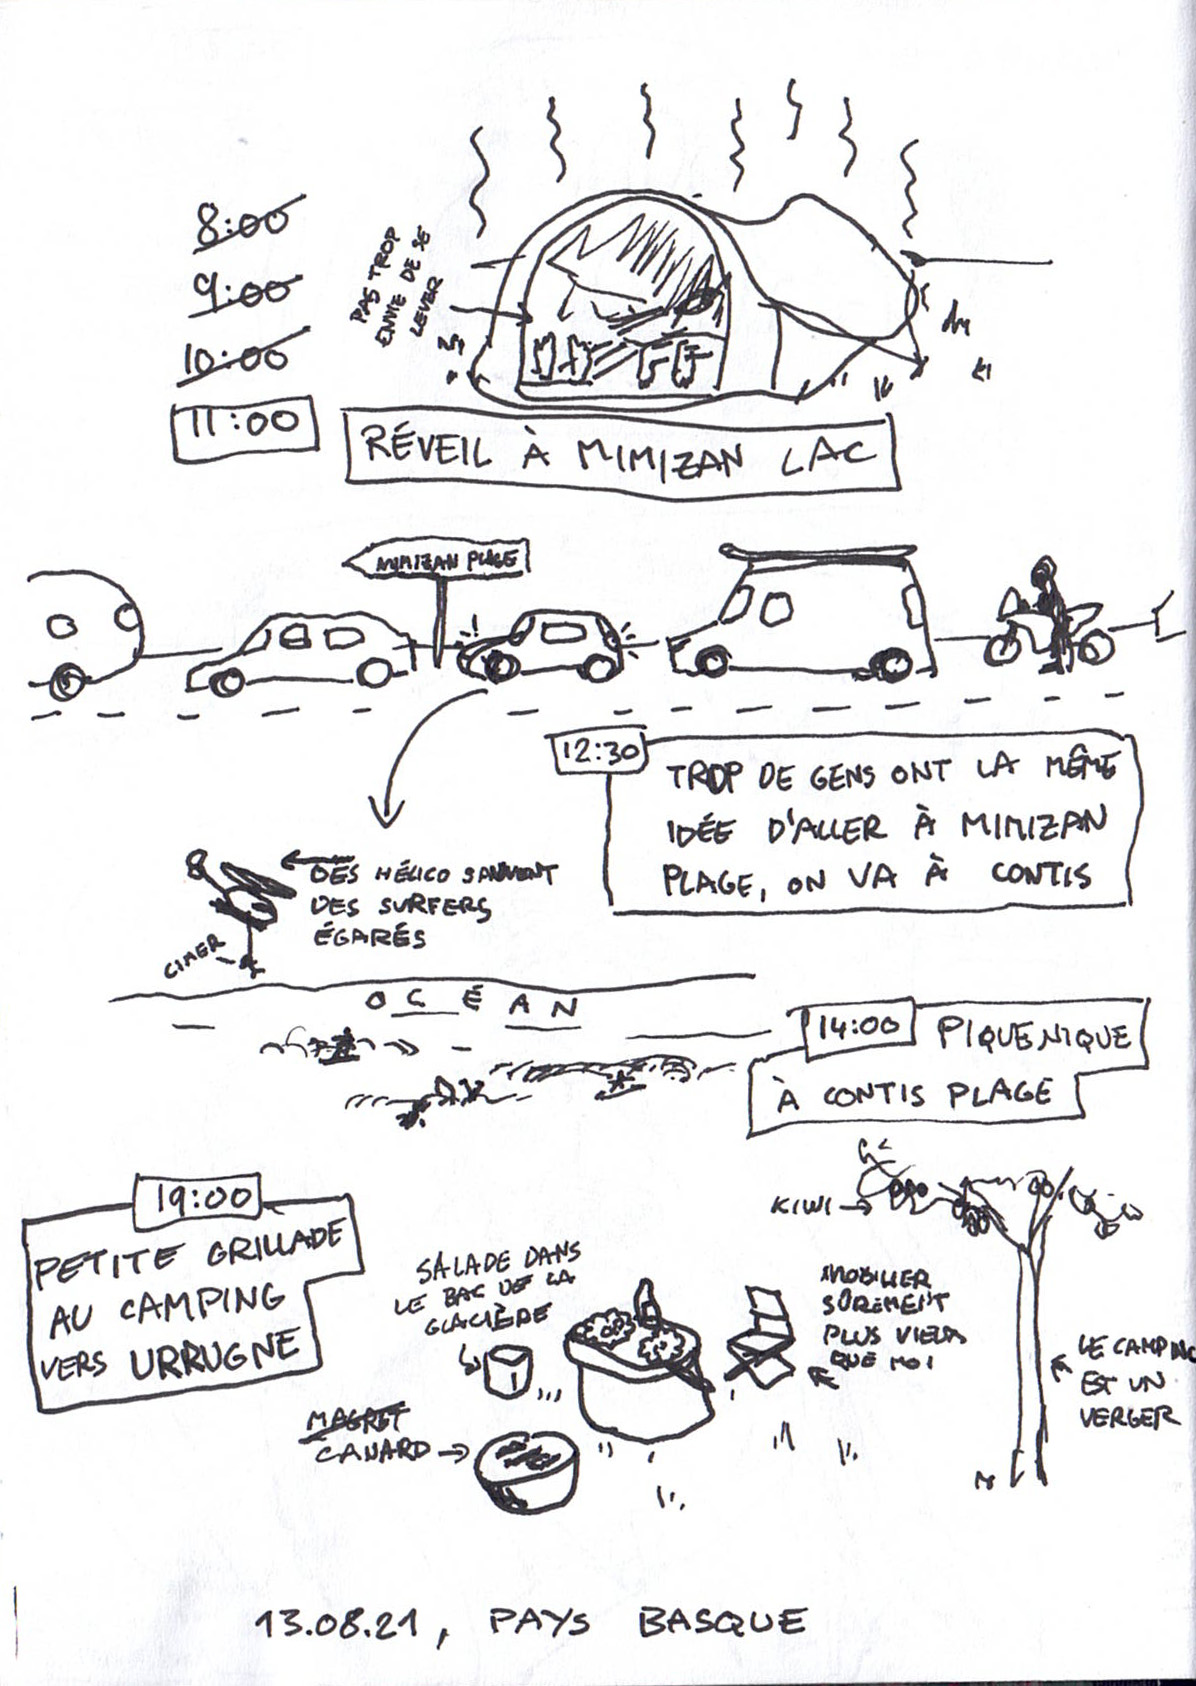 8:00
9:00
10:00
11:00
PAS TROP
ENVIE DE SE
LEVER
RÉVEIL À MIMIZAN LAC
MIMIZAN PLAGE
12:30
TROP DE GENS ONT LA MÊME
IDÉE D'ALLER À MIMIZAN
PLAGE, ON VA À CONTIS
DES HÉLICO SAUVENT
DES SURFERS
ÉGARÉS
CIMER
OCÉAN
14:00 PIQUENIQUE
À CONTIS PLAGE
19:00
PETITE GRILLADE
AU CAMPING
VERS URRUGNE
SALADE DANS
LE BAC DE LA
GLACIÈRE
MAGRET
CANARD
KIWI
MOBILIER
SÛREMENT
PLUS VIEUX
QUE MOI
LE CAMPING
EST UN
VERGER
13.08.21, PAYS BASQUE